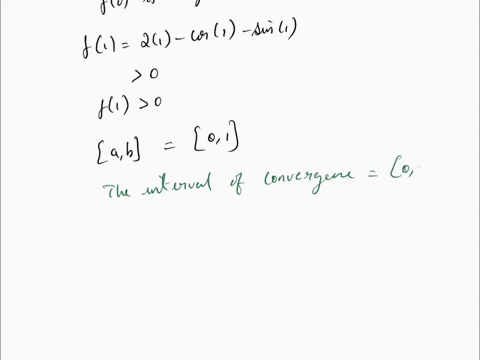 f(0) is
f(1) = 2(1) - cos(1) - sin(1)
> 0
f(1) > 0
[a,b] = [0,1]
The interval of convergene = [0,